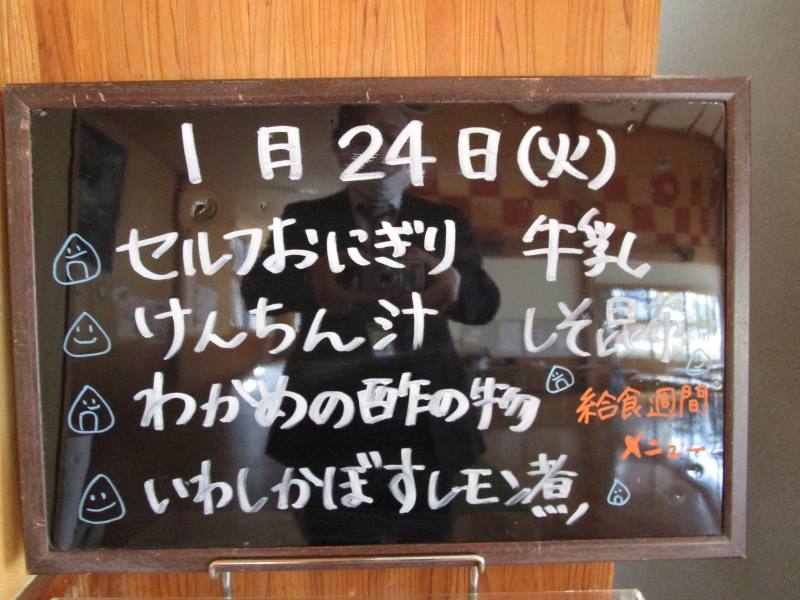 1月24日(火)
セルフおにぎり 牛乳
けんちん汁 しそ昆布
わかめの酢の物 給食週間
メニュー
いわしかぼすレモン煮